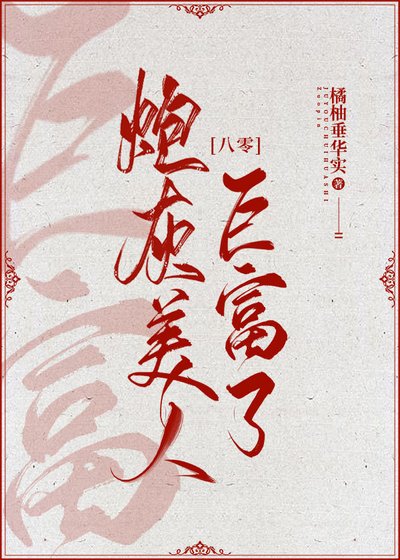 炮灰美人
[八零]
巨富了
橘柚垂华实 著
JUYOUCHUIHUASHI
Zuopin
巨富